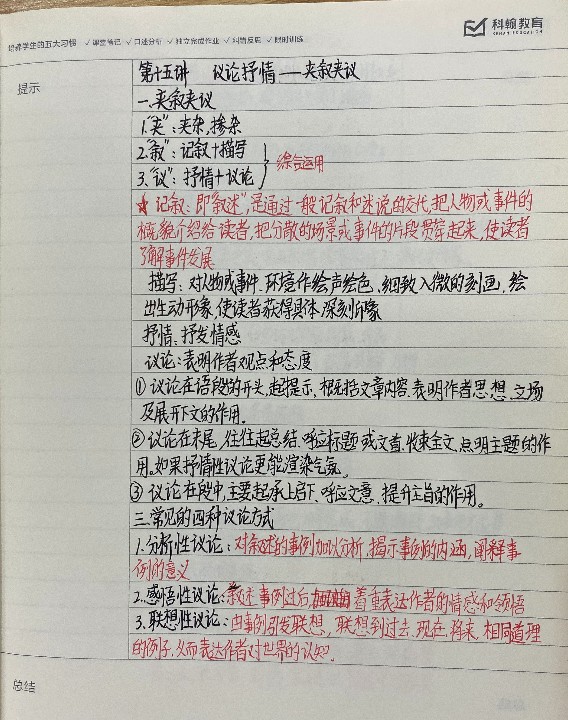 培养学生的五大习惯 ✓课堂笔记 ✓口述分析 ✓独立完成作业 ✓纠错反思 ✓限时训练
科翰教育
KEHAN EDUCATION
提示
第十五讲 议论抒情——夹叙夹议
一.夹叙夹议
1."夹":夹杂,掺杂
2."叙":记叙+描写
3."议":抒情+议论
综合运用
★ 记叙:即"叙述",是通过一般记叙和述说的交代,把人物或事件的
概貌介绍给读者,把分散的场景或事件的片段贯穿起来,使读者
了解事件发展
描写:对人物或事件.环境作绘声绘色.细致入微的刻画,绘
出生动形象,使读者获得具体.深刻印象
抒情:抒发情感
议论:表明作者观点和态度
①议论在语段的开头,起提示.概括文章内容.表明作者思想.立场
及展开下文的作用.
②议论在末尾,往往起总结.呼应标题或文首.收束全文.点明主题的作
用。如果抒情性议论更能渲染气氛。
③议论在段中,主要起承上启下.呼应文意.提升主旨的作用。
三.常见的四种议论方式
1.分析性议论:对叙述的事例加以分析,揭示事例的内涵,阐释事
例的意义
2.感悟性议论:叙述事例过后 着重表达作者的情感和领悟
3.联想性议论:由事例引发联想,联想到过去.现在.将来,相同道理
的例子,从而表达作者对世界的认知.
总结